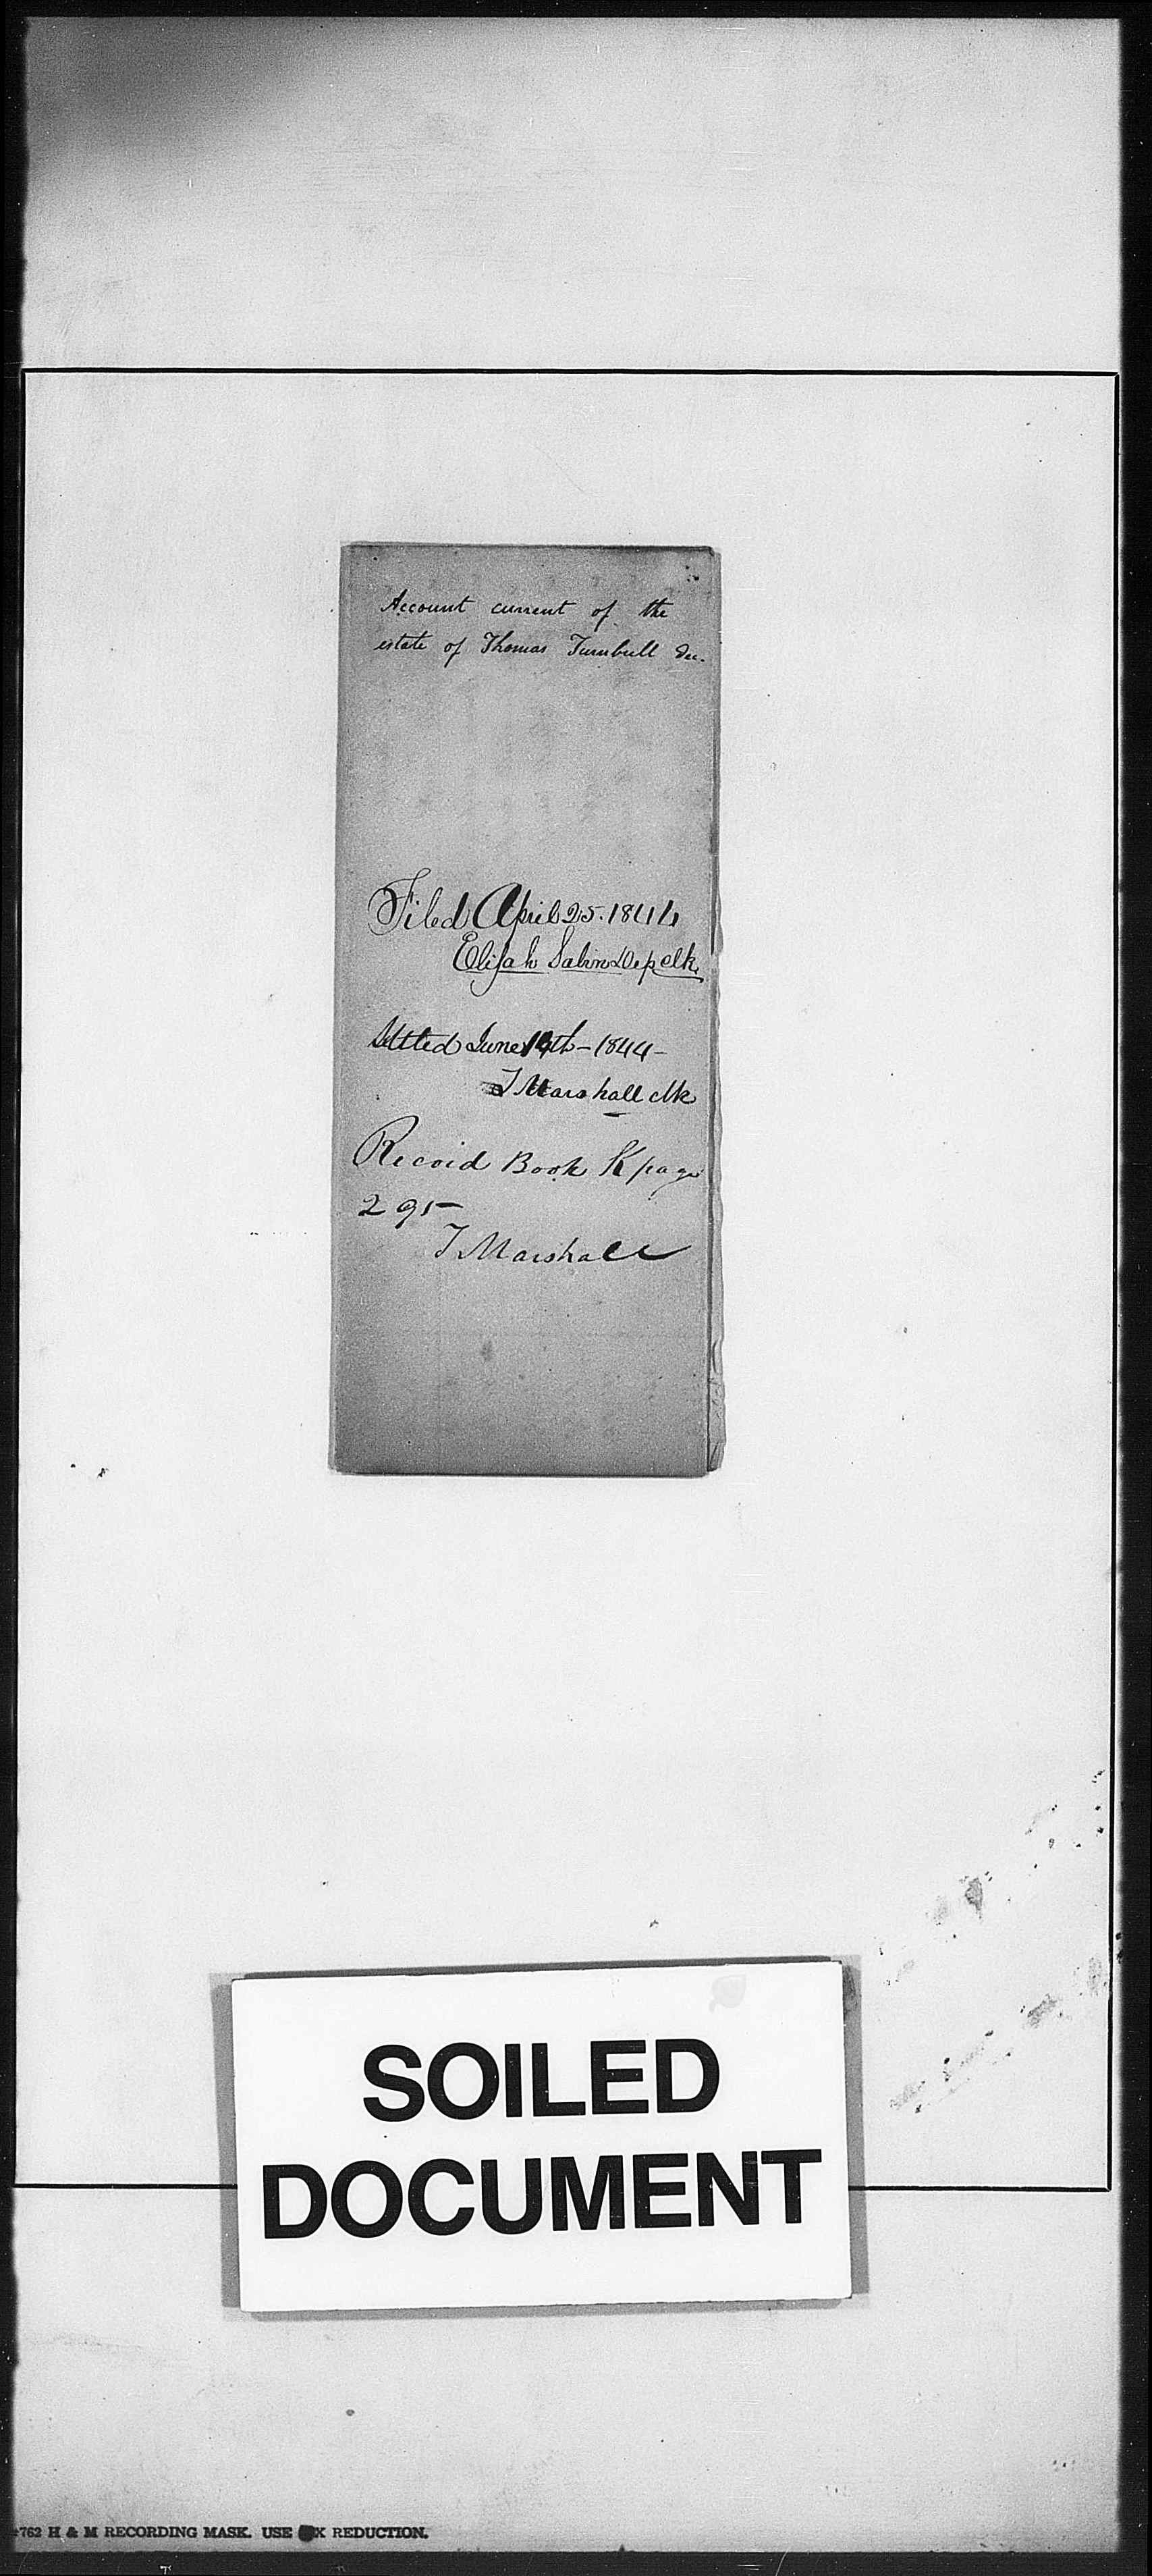 Account current of the
estate of Thomas Turnbull Dec.
Filed April 25. 1844
Elijah Sabin Dep clk
Settled June 14th - 1844 -
T Marshall clk
Record Book K page
295
T Marshall
SOILED
DOCUMENT
762 H & M RECORDING MASK. USE X REDUCTION.